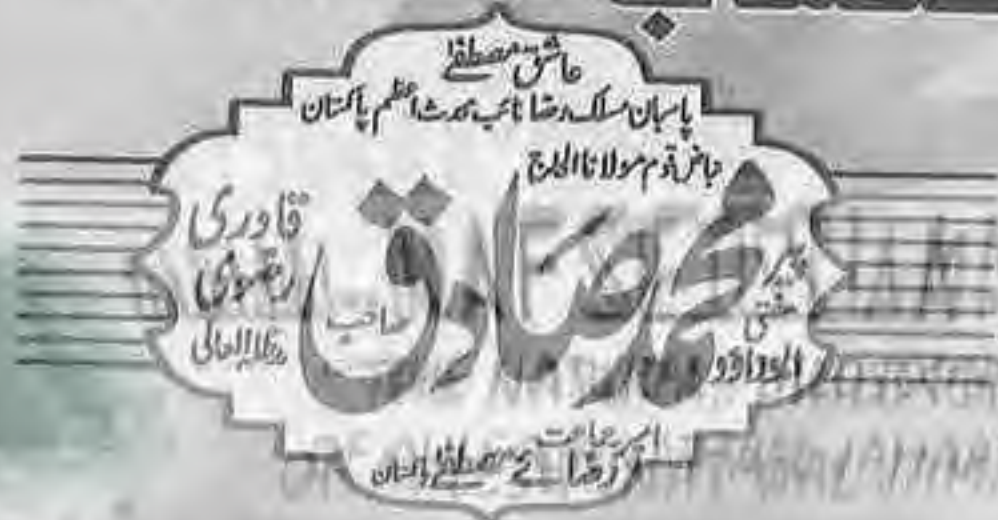 عاشق مصطفےٰ
پاسبان مسلک رضا نائب محدث اعظم پاکستان
نباض قوم مولانا الحاج
پیر مفتی ابوداؤد
محمد صادق
صاحب
قادری
رضوی
مدظلہ العالی
امیر جماعت
رضائے مصطفےٰ پاکستان